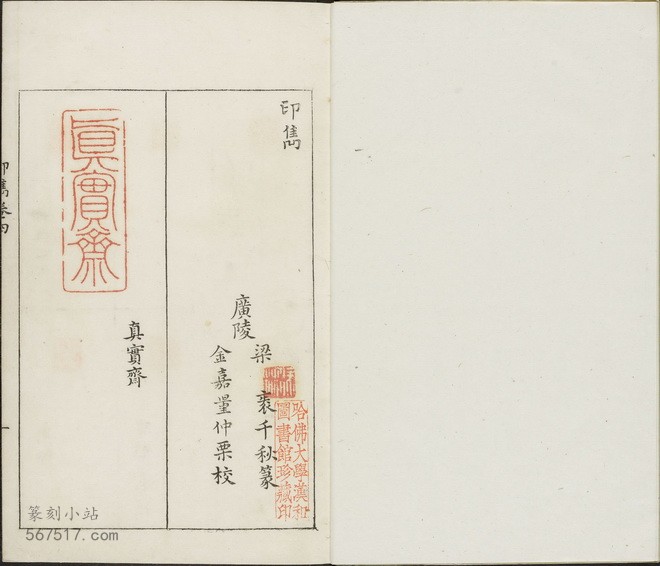 印雋
廣陵
梁 袠千秋篆
金嘉量仲栗校
哈佛大學漢和
圖書館珍藏印
眞實齋
真實齋
印雋卷四
一
篆刻小站
567517.com